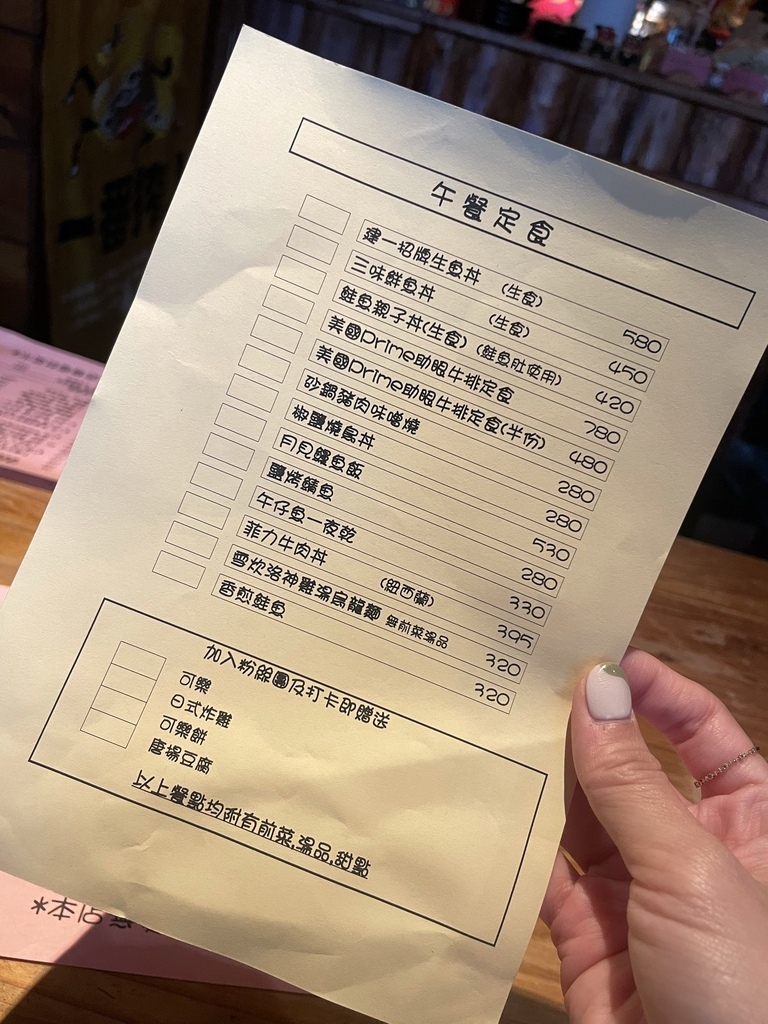 午餐定食
建一招牌生魚丼 (生食) 580
三味鮮魚丼 (生食) 450
鮭魚親子丼(生食) (鮭魚肚使用) 420
美國Prime助眼牛排定食 780
美國Prime助眼牛排定食(半份) 480
砂鍋豬肉味噌燒 280
椒鹽燒鳥丼 280
月見鰻魚飯 530
鹽烤鯖魚 280
午仔魚一夜乾 330
菲力牛肉丼 (紐西蘭) 395
雪炊洛神雞湯烏龍麵 無前菜湯品 320
香煎鮭魚 320
加入粉絲團及打卡即贈送
可樂
日式炸雞
可樂餅
唐揚豆腐
以上餐點均附有前菜.湯品.甜點
*本店
一番搾